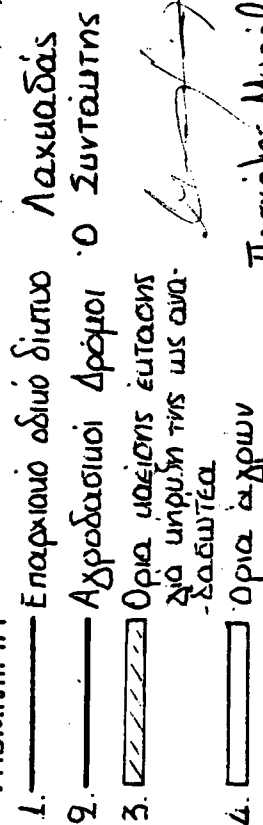 1. Επαρχιακό οδικό δίκτυο
2. Αγροδασικοί Δρόμοι
3. Όρια καείσης έκτασης
για κήρυξή της ως ανα-
-δασωτέα
4. Όρια αγρών
Λαχμαδάς
Ο Συντάκτης